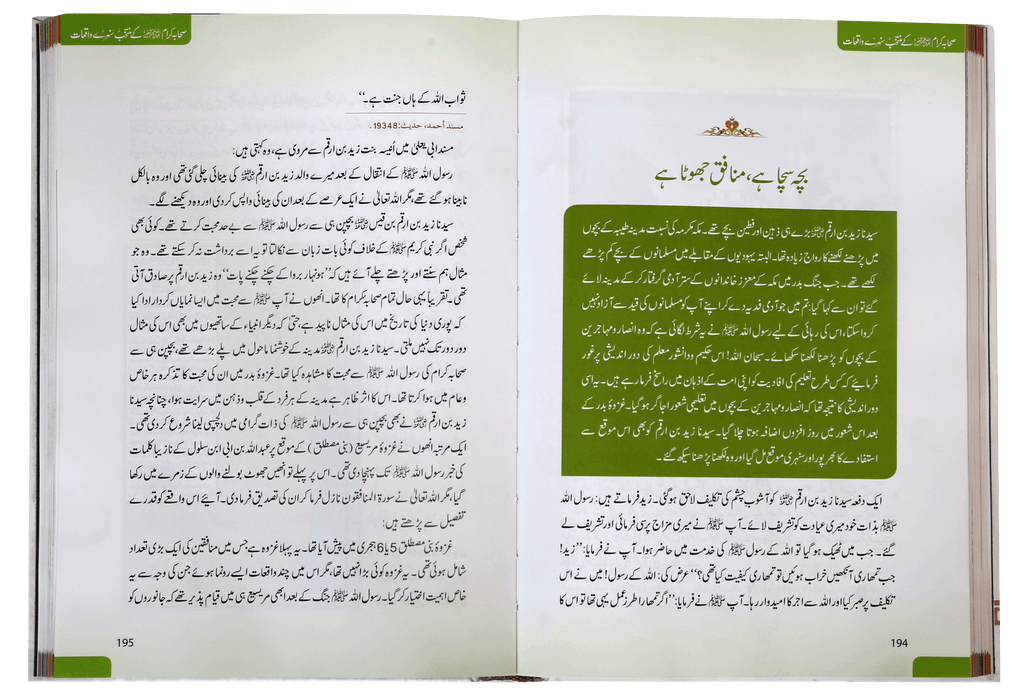 صحابہ کرام ﷢ کے منتخب سنہرے واقعات
بچہ سچا ہے، منافق جھوٹا ہے
سیدنا زید بن ارقم ﷜ بڑے ہی ذہین اور فطین بچے تھے۔ مکہ مکرمہ کی نسبت مدینہ طیبہ کے بچوں
میں پڑھنے لکھنے کا رواج زیادہ تھا۔ البتہ یہودیوں کے مقابلے میں مسلمانوں کے بچے کم پڑھے
لکھے تھے۔ جب جنگ بدر میں مکہ کے معزز خاندانوں کے ستر آدمی گرفتار کر کے مدینہ لائے
گئے تو ان سے کہا گیا: تم میں جو آدمی فدیہ دے کر اپنے آپ کو مسلمانوں کی قید سے آزاد نہیں
کروا سکتا، اس کی رہائی کے لیے رسول اللہ ﷺ نے یہ شرط لگائی ہے کہ وہ انصار و مہاجرین
کے بچوں کو پڑھنا لکھنا سکھائے۔ سبحان اللہ! اس حکیم و دانشور معلم کی دور اندیشی پر غور
فرمائیے کہ کس طرح تعلیم کی افادیت کو اپنی امت کے اذہان میں راسخ فرما رہے ہیں۔ یہ اسی
دور اندیشی کا نتیجہ تھا کہ انصار و مہاجرین کے بچوں میں تعلیمی شعور اجاگر ہو گیا۔ غزوۂ بدر کے
بعد اس شعور میں روز افزوں اضافہ ہوتا چلا گیا۔ سیدنا زید بن ارقم کو بھی اس موقع سے
استفادے کا بھرپور اور سنہری موقع مل گیا اور وہ لکھنا پڑھنا سیکھ گئے۔
ایک دفعہ سیدنا زید بن ارقم ﷜ کو آشوبِ چشم کی تکلیف لاحق ہو گئی۔ زید فرماتے ہیں: رسول اللہ
ﷺ بذات خود میری عیادت کو تشریف لائے۔ آپ ﷺ نے میری مزاج پرسی فرمائی اور تشریف لے
گئے۔ جب میں ٹھیک ہو گیا تو اللہ کے رسول ﷺ کی خدمت میں حاضر ہوا۔ آپ نے فرمایا: ”زید!
جب تمھاری آنکھیں خراب ہوئیں تو تمھاری کیفیت کیا تھی؟“ عرض کی: اللہ کے رسول! میں نے اس
تکلیف پر صبر کیا اور اللہ سے اجر کا امیدوار رہا۔ آپ ﷺ نے فرمایا: ”اگر تمھارا طرز عمل یہی تھا تو اس کا
194
صحابہ کرام ﷢ کے منتخب سنہرے واقعات
ثواب اللہ کے ہاں جنت ہے۔“
مسند أحمد، حدیث: 19348۔
مسند ابی یعلیٰ میں اُنیسہ بنت زید بن ارقم سے مروی ہے، وہ کہتی ہیں:
رسول اللہ ﷺ کے انتقال کے بعد میرے والد زید بن ارقم ﷜ کی بینائی چلی گئی تھی اور وہ بالکل
نابینا ہو گئے تھے، مگر اللہ تعالیٰ نے ایک عرصے کے بعد ان کی بینائی واپس کر دی اور وہ دیکھنے لگے۔
سیدنا زید بن ارقم بن قیس ﷜ بچپن ہی سے رسول اللہ ﷺ سے بے حد محبت کرتے تھے۔ کوئی بھی
شخص اگر نبی کریم ﷺ کے خلاف کوئی بات زبان سے نکالتا تو یہ اسے برداشت نہ کر سکتے تھے۔ وہ جو
مثال ہم سنتے اور پڑھتے چلے آئے ہیں کہ ”ہونہار بروا کے چکنے چکنے پات“ وہ زید بن ارقم پر صادق آتی
تھی۔ تقریباً یہی حال تمام صحابہ کرام کا تھا۔ انھوں نے آپ ﷺ سے محبت میں ایسا نمایاں کردار ادا کیا
کہ پوری دنیا کی تاریخ میں اس کی مثال ناپید ہے، حتیٰ کہ دیگر انبیاء کے ساتھیوں میں بھی اس کی مثال
دور دور تک نہیں ملتی۔ سیدنا زید بن ارقم ﷜ مدینہ کے خوشنما ماحول میں پلے بڑھے تھے، بچپن ہی سے
صحابہ کرام کی رسول اللہ ﷺ سے محبت کا مشاہدہ کیا تھا۔ غزوۂ بدر میں ان کی محبت کا تذکرہ ہر خاص
و عام میں ہوا کرتا تھا۔ اس کا اثر ظاہر ہے مدینہ کے ہر فرد کے قلب و ذہن میں سرایت ہوا، چنانچہ سیدنا
زید بن ارقم ﷜ نے بھی بچپن ہی سے رسول اللہ ﷺ کی ذات گرامی میں دلچسپی لینا شروع کر دی تھی۔
ایک مرتبہ انھوں نے غزوۂ مریسیع (بنی مصطلق) کے موقع پر عبداللہ بن ابی ابن سلول کے نازیبا کلمات
کی خبر رسول اللہ ﷺ تک پہنچا دی تھی۔ اس پر پہلے تو انھیں جھوٹ بولنے والوں کے زمرے میں رکھا
گیا، مگر اللہ تعالیٰ نے سورۃ المنافقون نازل فرما کر ان کی تصدیق فرما دی۔ آیئے اس واقعے کو قدرے
تفصیل سے پڑھتے ہیں:
غزوۂ بنی مصطلق 5 یا 6 ہجری میں پیش آیا تھا۔ یہ پہلا غزوہ ہے جس میں منافقین کی ایک بڑی تعداد
شامل ہوئی تھی۔ یہ غزوہ کوئی بڑا نہیں تھا، مگر اس میں چند واقعات ایسے رونما ہوئے جن کی وجہ سے یہ
خاص اہمیت اختیار کر گیا۔ رسول اللہ ﷺ جنگ کے بعد ابھی مریسیع ہی میں قیام پذیر تھے کہ جانوروں کو
195